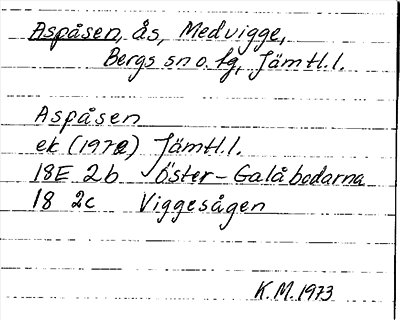 Aspåsen, ås, Medvigge,
Bergs sn o. tg, Jämtl. l.
Aspåsen
ek (1972) Jämtl. l.
18E 2b Öster-Galåbodarna
18 2c Viggesågen
K.M. 1973